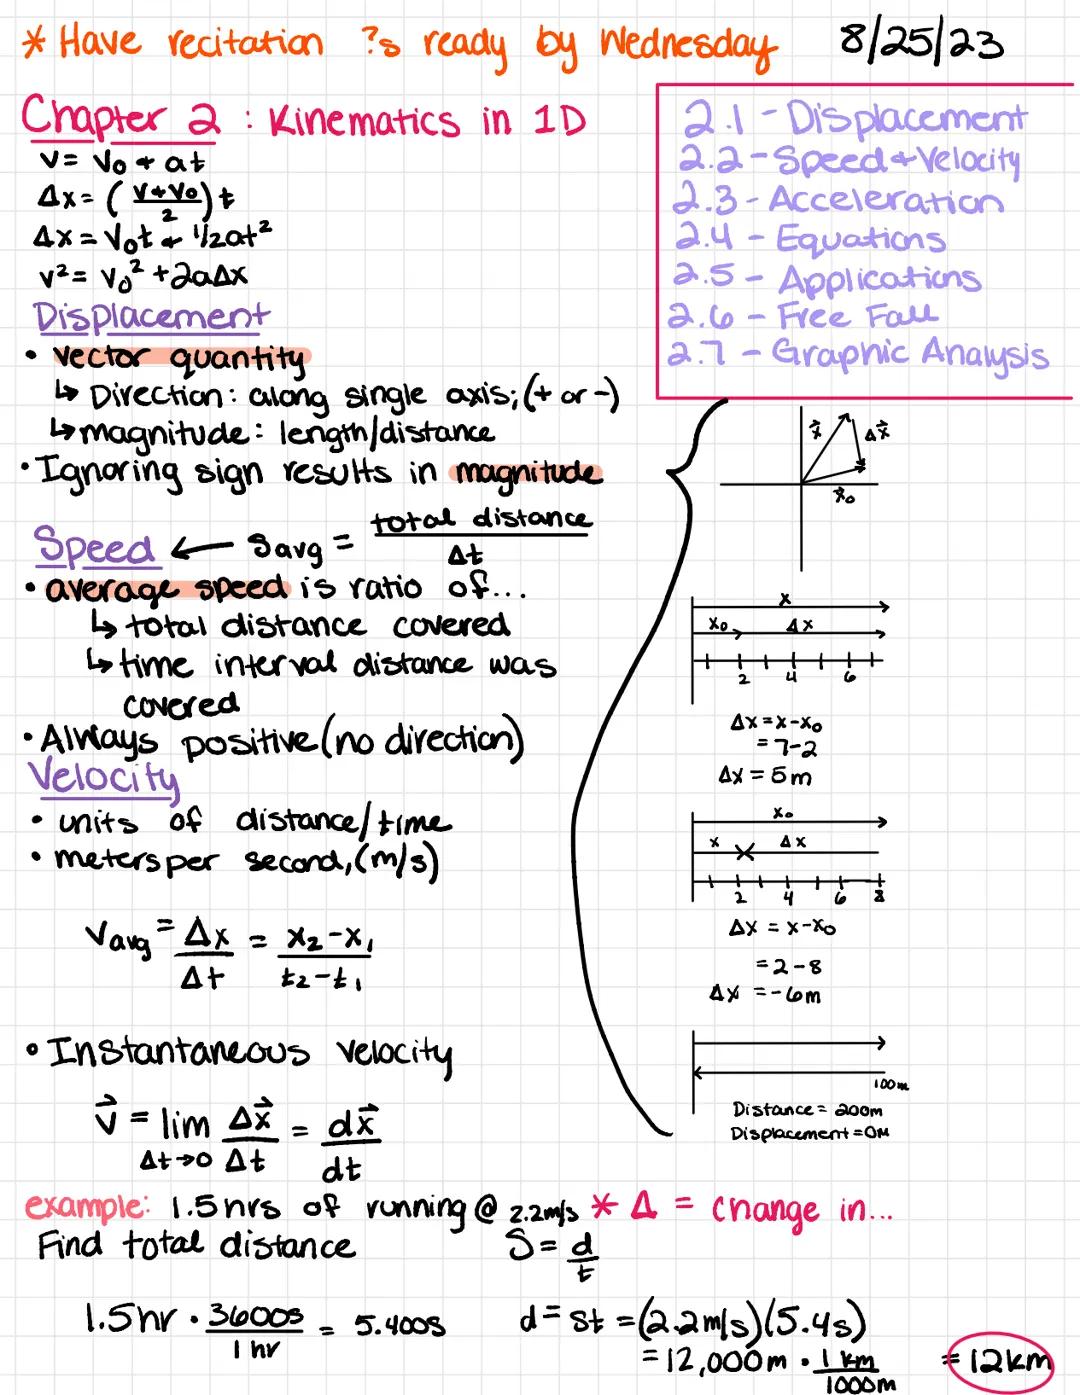 * Have recitation ?s ready by Wednesday 8/25/23
Chapter 2 : Kinematics in 1D
v = v₀ + at
Δx = ( v+v₀ / 2 ) t
Δx = v₀t + 1/2at²
v² = v₀² + 2aΔx
2.1 - Displacement
2.2 - Speed + Velocity
2.3 - Acceleration
2.4 - Equations
2.5 - Applications
2.6 - Free Fall
2.7 - Graphic Analysis
Displacement
• vector quantity
↳ Direction: along single axis; (+ or -)
↳ magnitude: length/distance
• Ignoring sign results in magnitude
Speed ← Savg = total distance / Δt
• average speed is ratio of...
↳ total distance covered
↳ time interval distance was
covered
• Always positive (no direction)
Velocity
• units of distance/time
• meters per second, (m/s)
Vavg = Δx / Δt = x₂-x₁ / t₂-t₁
• Instantaneous velocity
v⃗ = lim Δt→0 Δx⃗ / Δt = dx⃗ / dt
x⃗ Δx⃗
x⃗₀
x
x₀ Δx
2 4 6
Δx = x-x₀
= 7-2
Δx = 5m
x₀
x Δx
2 4 6 8
Δx = x-x₀
= 2-8
Δx = -6m
100m
Distance = 200m
Displacement = 0m
example: 1.5 hrs of running @ 2.2m/s * Δ = change in...
Find total distance S = d / t
1.5hr · 3600s / 1 hr = 5.400s
d = st = (2.2m/s)(5.4s)
= 12,000m · 1 km / 1000m = 12km